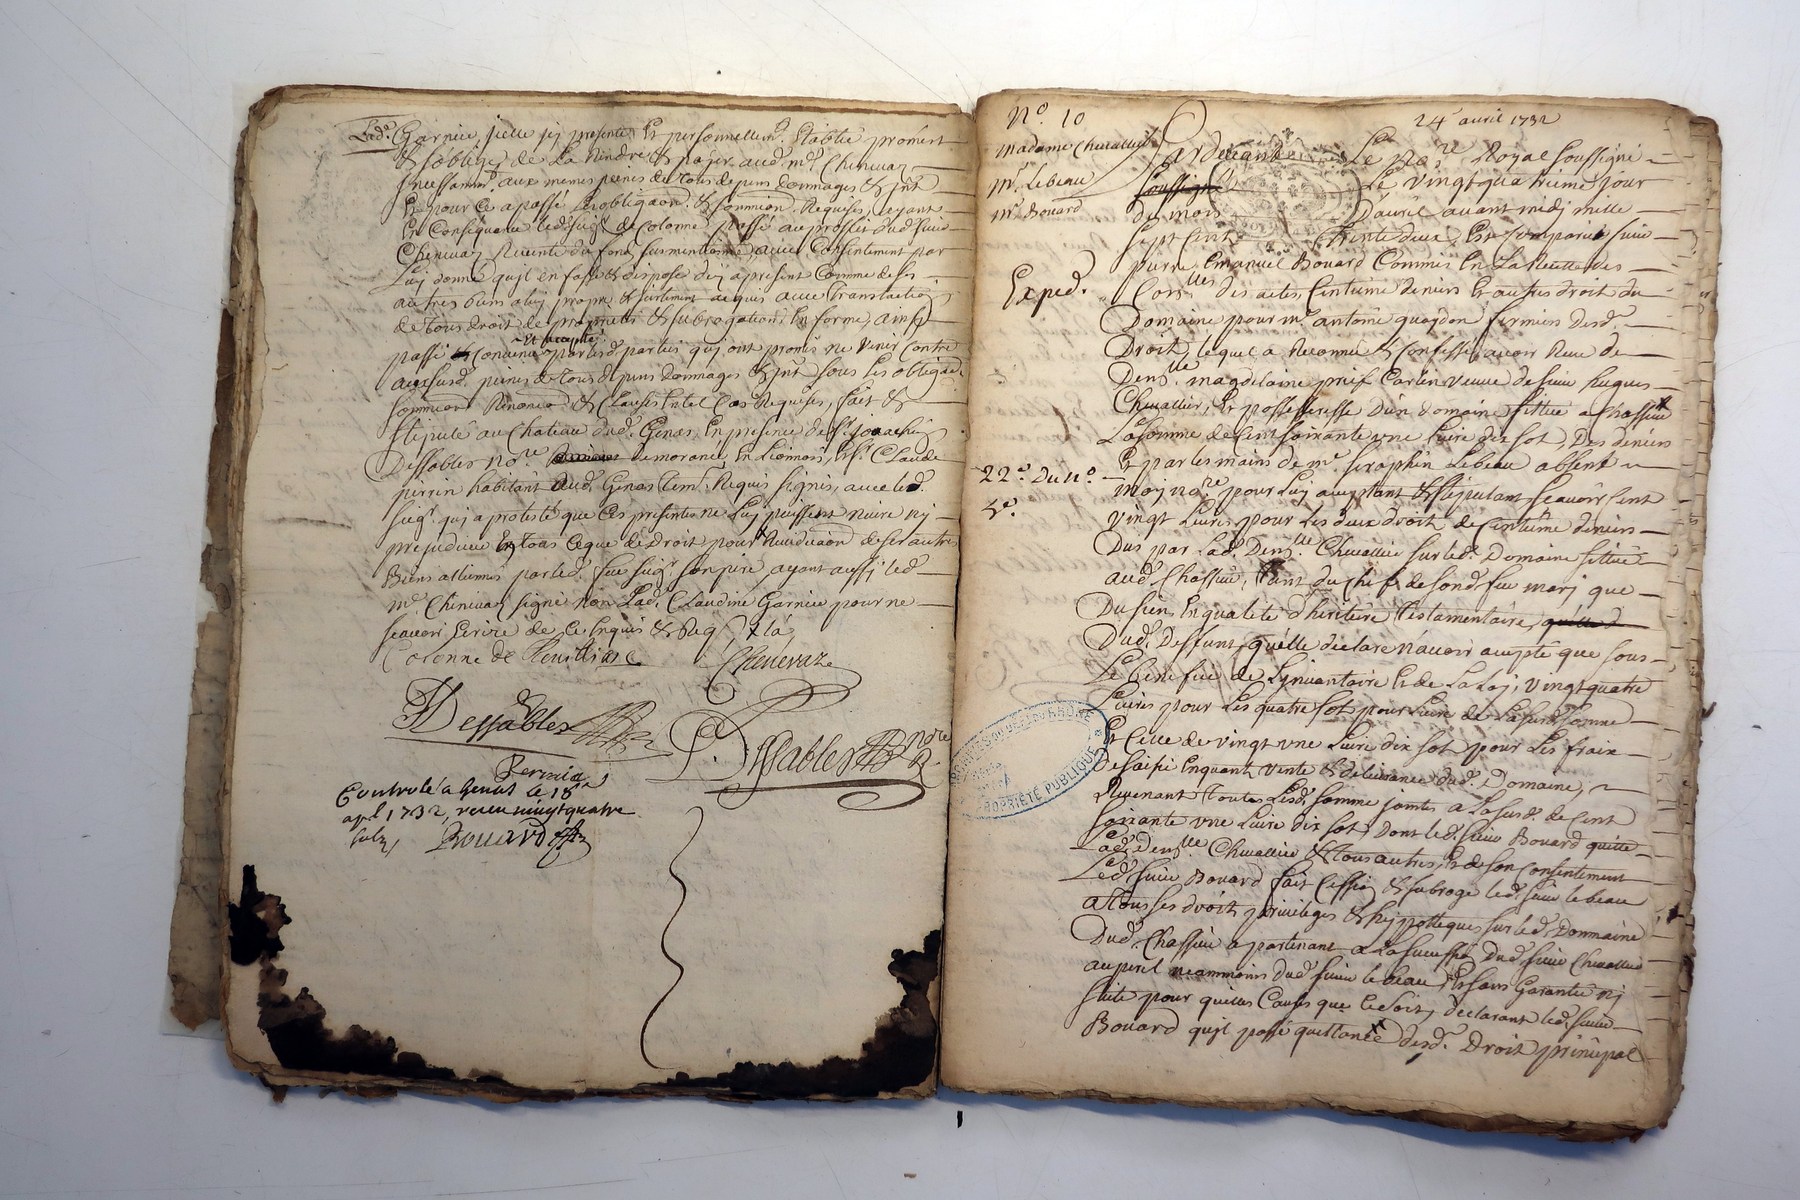 Lad.e Garnier, jcelle jcy presente, Et personnellem.t Etablie promest
& s'oblige de La Rendre & payer aud. m.e Chenevaz
Incessamm.t aux memes peines de tous depens dommages & jnt
Et pour ce a passé les obligaon. & soumiôn. Requises, ayant
En Consequance led. seig.r de Colonne passé au proffit dud. sieur
Chenevaz Revente du fond surmentionné, avec Consentement par
Luy donné qu'jl en fasse & dispose dez a present Comme de ses
autres biens a luy propre & acquis avec Translation
de tous droit de proprieté & subrogation En forme, ainsy
Et accepté
passé & Convenu par lesd. parties quj ont promis ne Venir Contre
aux susd. peines de tous depens dommages & jnt sous Les obligaôn.
soumiôn. Renonciaôn. & Clauses En tel Cas Requises, fait &
stipulé au Chateau dud. Genas, En presence de S.r joachin
Dessables No.re demorance En Lionnois, & S.r Claude
perrin habitant aud. Genas tem.t Requis signés, avec led.
seig.r quj a protesté que Ces presentes ne Luy puissent nuire nj
prejudicier En tous Ceque de Droit, pour Revendicaôn de ses autres
Biens allienés par led. feu seig.r son pere, ayant aussj led.
m.e Chenevaz signé non Lad. Claudine Garnier pour ne
scavoir Ecrire de Ce Enquis & Req
Colonne de Chenevaz
J Dessables
P. Dessables no.re
Perrin
Controlé a Genas le 18.e
apl 1732, receu vingt quatre
sols, Bouard
N.o 10
24 avril 1732
Madame Chevallier
M.r Lebeau
M.r Bouard
Exped.
22.e Du N.o
5.e
Pardevant Le No.re Royal soussigné
soussigné Le vingt quatrieme jour
du mois D'avril avant midj mille
sept Cent trente deux, Est Comparu sieur
pierre Emanuel Bouard Commis En La Recette des
Con.lles des actes, Centieme deniers & autres droit du
Domaine pour m.e antoine quaydon fermier desd.
Droit, lequel a Reconnu & Confessé avoir Receu de
Dem.lle magdelaine Carlin veuve de sieur hugues
Chevallier, Et possesseresse D'un domaine sittué a Chassieu
La somme de Cent soixante une Livre dix sol, Des deniers
Et par les mains de m.e seraphin Lebeau absent
moy no.re pour Luy acceptant & stipulant scavoir Cent
vingt Livres pour Les deux droit de Centieme deniers
Dus par Lad. Dem.lle Chevallier sur led. Domaine sittué
aud. Chassieu, tant du chef de son d. feu marj que
Du sien En qualité d'heritiere testamentaire,
Dud. Deffunt, qu'elle declare n'avoir accepté que sous
Le Benefice de L'jnvantaire & de La Loj, vingt quatre
Livres pour Les quatre sols pour Livre de La susd. somme
Et Celle de vingt une Livre dix sol pour Les fraix
De saisie Enquant, vente & delivrance dud. Domaine,
Revenant Toutes Lesd. somme jointes a La susd. de Cent
soixante une Livre dix sol, Dont led. sieur Bouard quitte
Lad. Dem.lle Chevallier & tous autres, Et de son Consentement
Led. sieur Bouard fait Cession & subroge led. sieur lebeau
a tous ses droit privileges & hypotteques sur led. Dommaine
Dud. Chassieu apartenant a La succession Dud. sieur Chevallier
au peril neammoins dud. sieur le beau, Et sans Garantie nj
suite pour quelles Causes que Ce soit, declarant led. sieur
Bouard qu'jl passé quittance desd. Droit principal
PROPRIÉTÉ PUBLIQUE